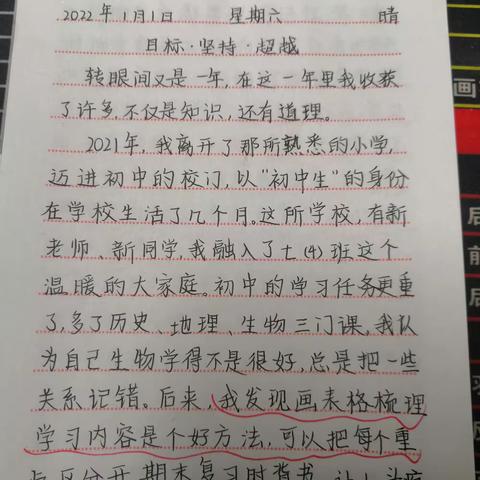 2022年1月1日 星期六 晴
目标·坚持·超越
转眼间又是一年,在这一年里我收获
了许多,不仅是知识,还有道理。
2021年,我离开了那所熟悉的小学,
迈进初中的校门,以“初中生”的身份
在学校生活了几个月。这所学校,有新
老师、新同学,我融入了七(4)班这个
温暖的大家庭。初中的学习任务更重
了,多了历史、地理、生物三门课,我认
为自己生物学得不是很好,总是把一些
关系记错。后来,我发现画表格梳理
学习内容是个好方法,可以把每个重
点区分开,期末复习时背书
画
后
前
后